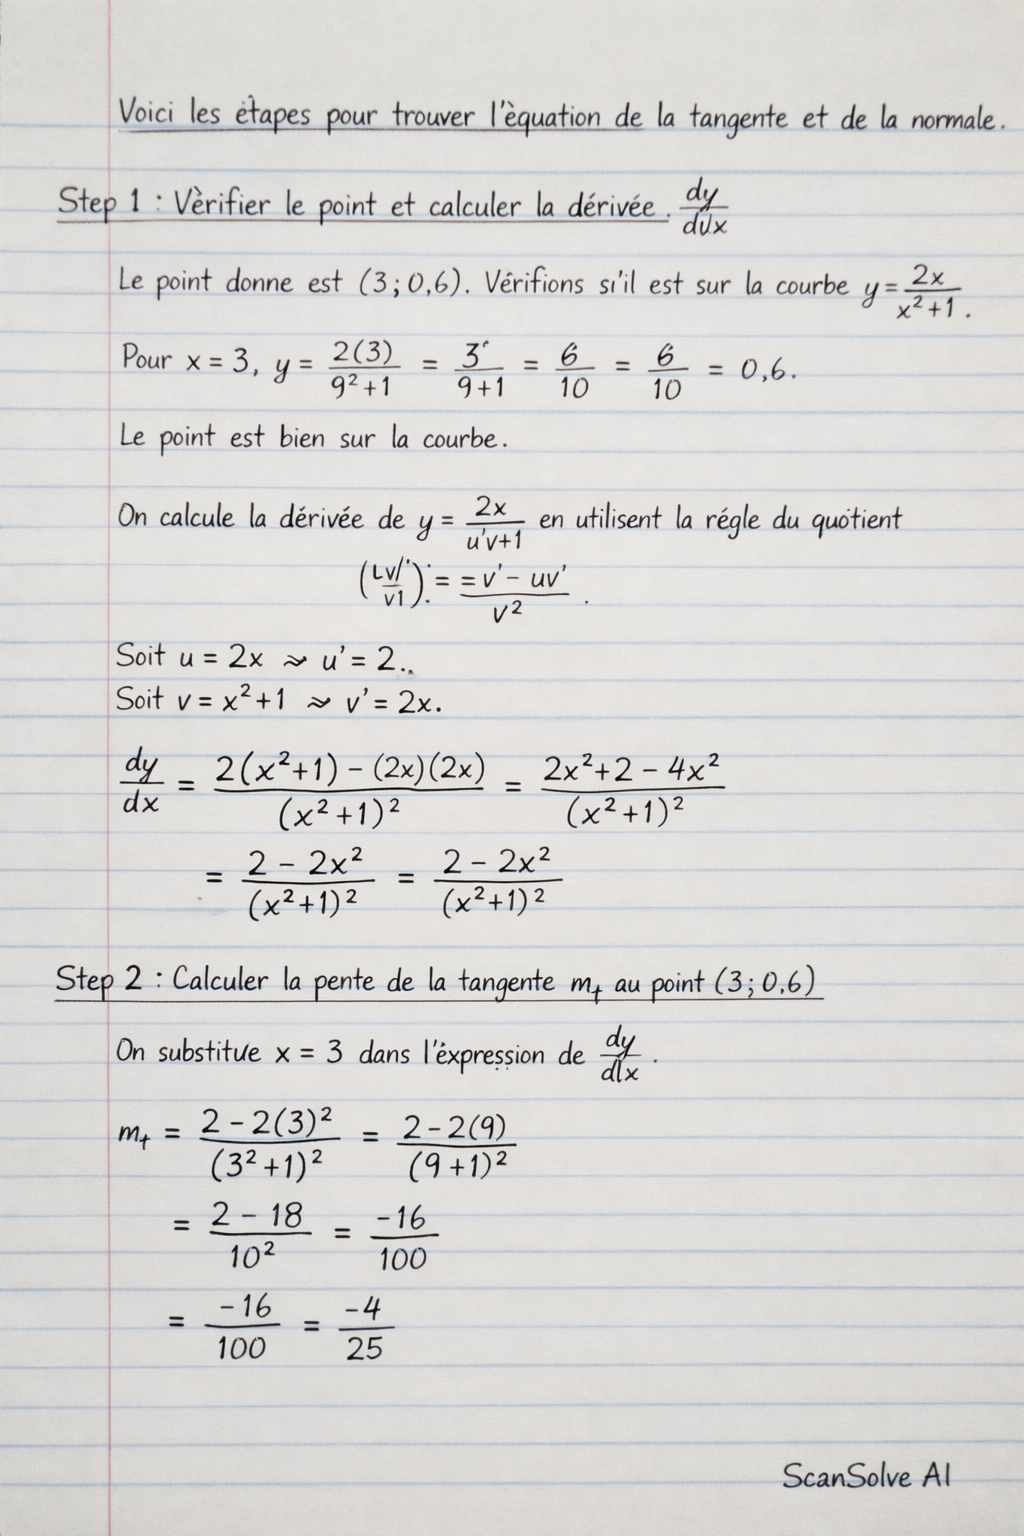 Voici les étapes pour trouver l'èquation de la tangente et de la normale.
Step 1 : Vèrifier le point et calculer la dérivée . dy/dux
Le point donne est (3; 0,6). Vérifions si'il est sur la courbe y = 2x/x²+1 .
Pour x = 3, y = 2(3)/9²+1 = 3‘/9+1 = 6/10 = 6/10 = 0,6.
Le point est bien sur la courbe.
On calcule la dérivée de y = 2x/u'v+1 en utilisent la régle du quotient
= = v' - uv'/v² .
Soit u = 2x ≈> u' = 2..
Soit v = x²+1 ≈> v' = 2x.
dy/dx = 2(x²+1) - (2x)(2x)/(x²+1)² = 2x²+2 - 4x²/(x²+1)²
= 2 - 2x²/(x²+1)² = 2 - 2x²/(x²+1)²
Step 2 : Calculer la pente de la tangente m_t au point (3; 0,6)
On substitue x = 3 dans l'éxpression de dy/dlx .
m_t = 2 - 2(3)²/(3²+1)² = 2 - 2(9)/(9+1)²
= 2 - 18/10² = -16/100
= -16/100 = -4/25
ScanSolve AI